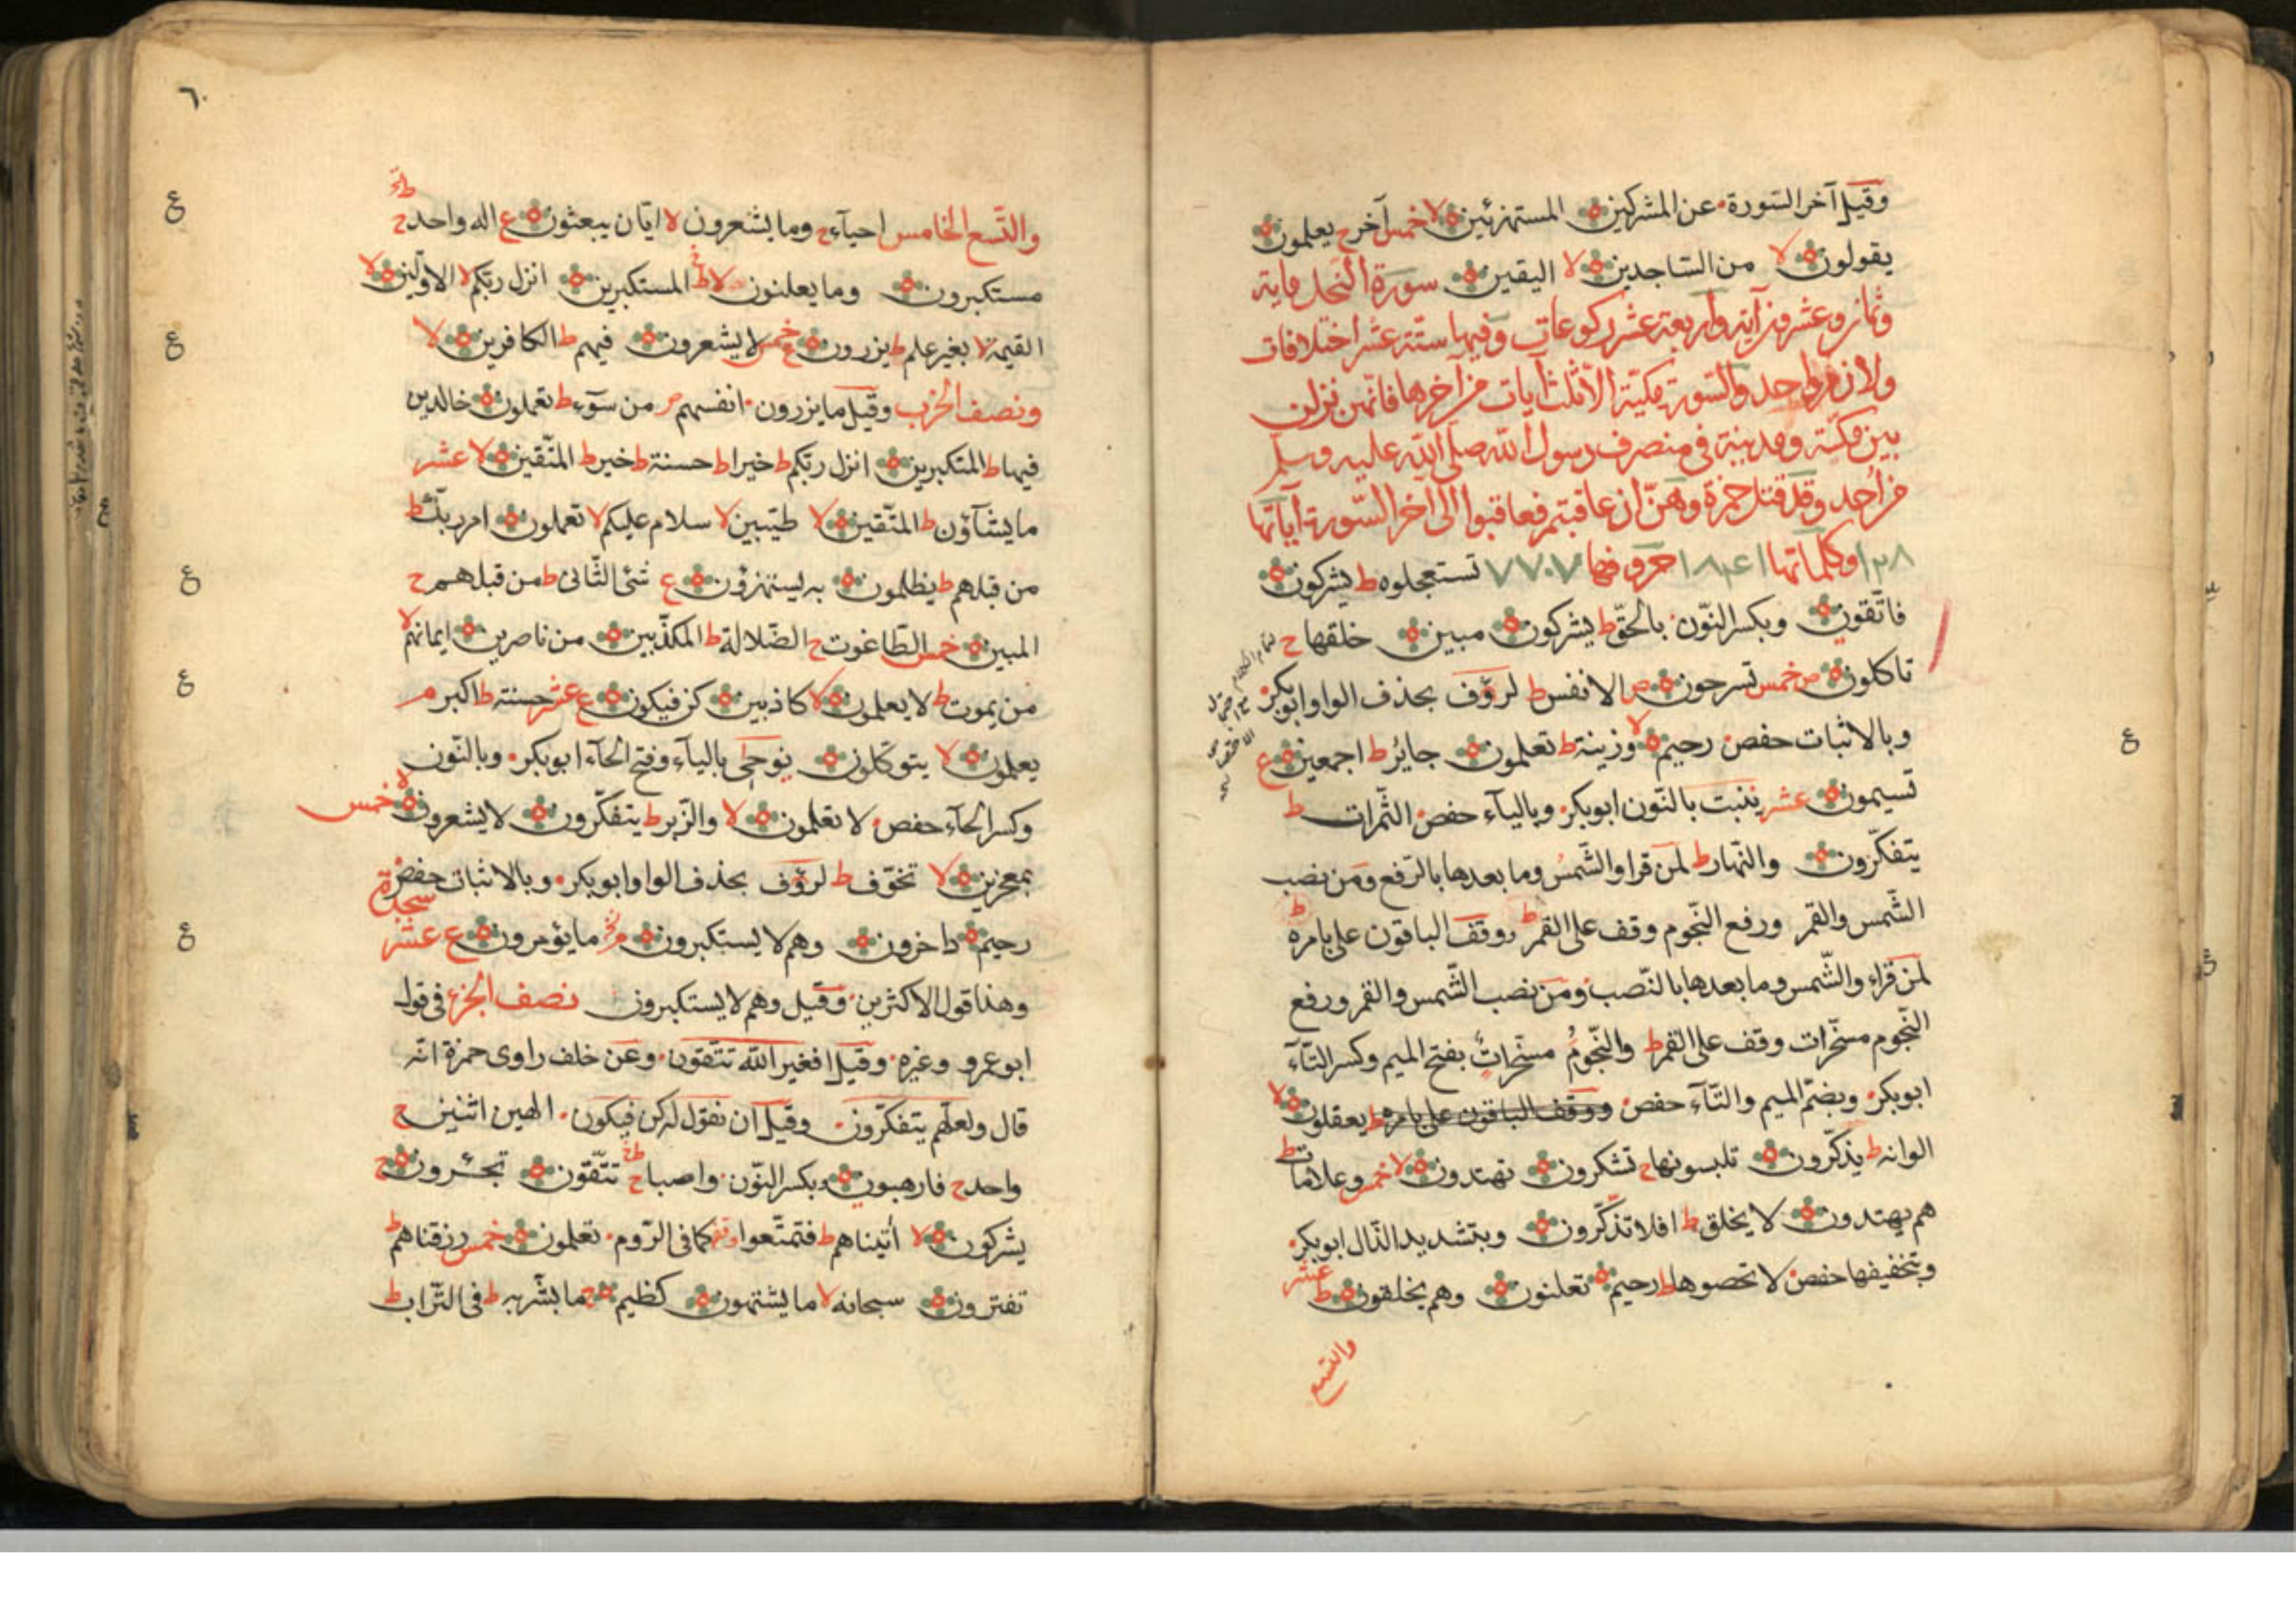 وقيل آخر السّورة عن المشركين المستهزئين لا خمس آخر ج يعلمون
يقولون لا من السّاجدين لا اليقين سورة النّحل ماية
وثمان وعشرون آية واربعة عشر ركوعات وفيها ستّة عشر اختلافات
ولازم واحد والسّورة مكيّة الّا ثلث آيات من آخرها فانّهن نزلن
بين مكّة ومدينة في منصرف رسول الله صلّى الله عليه وسلّم
من أحد وقد قتل حمزة وهنّ ان عاقبتم فعاقبوا الى آخر السّورة آياتها
١٢٨ وكلماتها ١٨٤١ حروفها ٧٧٠٧ تستعجلوه ط يشركون
فاتّقون وبكسر النّون بالحقّ ط يشركون مبين خلقها ج
تاكلون ص خمس تسرحون ص الانفس ط لرؤف بحذف الواو ابو بكر
وبالاثبات حفص رحيم لا وزينة ط تعلمون جائر ط اجمعين ع
تسيمون عشر ينبت بالنّون ابو بكر وبالياء حفص الثّمرات ط
يتفكّرون والنّهار ط لمن قرا والشّمس وما بعدها بالرّفع ومن نصب
الشّمس والقمر ورفع النّجوم وقف على القمر ط ووقف الباقون على بامره ط
لمن قراء والشّمس وما بعدها بالنّصب ومن نصب الشّمس والقمر ورفع
النّجوم مسخّرات وقف على القمر ط والنّجوم مسخّرات بفتح الميم وكسر التّاء
ابو بكر وبضمّ الميم والتّاء حفص ووقف الباقون على بامره ط يعقلون لا
الوانه ط يذّكّرون تلبسونها ج تشكرون تهتدون لا خمس وعلامات ط
هم يهتدون لا يخلق ط افلا تذكّرون وبتشديد الذّال ابو بكر
وبتخفيفها حفص لا تحصوها ط رحيم تعلنون وهم يخلقون ط عشر
والتسع
٦٠
والتّسع الخامس احياء ج وما يشعرون لا ايّان يبعثون ع اله واحد ج
مستكبرون وما يعلنون لا ط المستكبرين انزل ربّكم لا الاوّلين لا
القيمة لا بغير علم ط يزرون ع خمس لا يشعرون فيهم ط الكافرين لا
ونصف الحزب وقيل ما يزرون انفسهم م من سوء ط تعملون خالدين
فيها ط المتكبرين انزل ربّكم ط خيرا ط حسنة ط خير ط المتّقين لا عشر
ما يشآؤن ط المتّقين لا طيّبين لا سلام عليكم لا تعملون امر ربّك ط
من قبلهم ط يظلمون به يستهزؤن ع شئ الثّانى ط من قبلهم ج
المبين خمس الطّاغوت ج الضّلالة ط المكذّبين من ناصرين ايمانهم لا
من يموت ط لا يعلمون لا كاذبين كن فيكون ع عشر حسنة ط اكبر م
يعلمون لا يتوكّلون يوحى بالياء وفتح الحاء ابو بكر وبالنّون
وكسر الحاء حفص لا تعلمون لا والزّبر ط يتفكّرون لا يشعرون لا خمس
بمعجزين لا تخوّف ط لرؤف بحذف الواو ابو بكر وبالاثبات حفص سجدة
رحيم داخرون وهم لا يستكبرون ما يؤمرون ع عشر
وهذا قول الاكثرين وقيل وهم لا يستكبرون نصف الجزء في قول
ابو عمرو وغيره وقيل افغير الله تتّقون وعن خلف راوى حمزة انّه
قال ولعلّهم يتفكّرون وقيل ان نقول له كن فيكون الهين اثنين ج
واحد ج فارهبون وبكسر النّون واصبا ط ج تتّقون تجئرون ج
يشركون لا أتيناهم ط فتمتّعوا وقفه كما في الرّوم تعلمون خمس رزقناهم ط
تفترون سبحانه لا ما يشتهون كظيم ج ما بشّر به ط في التّراب ط